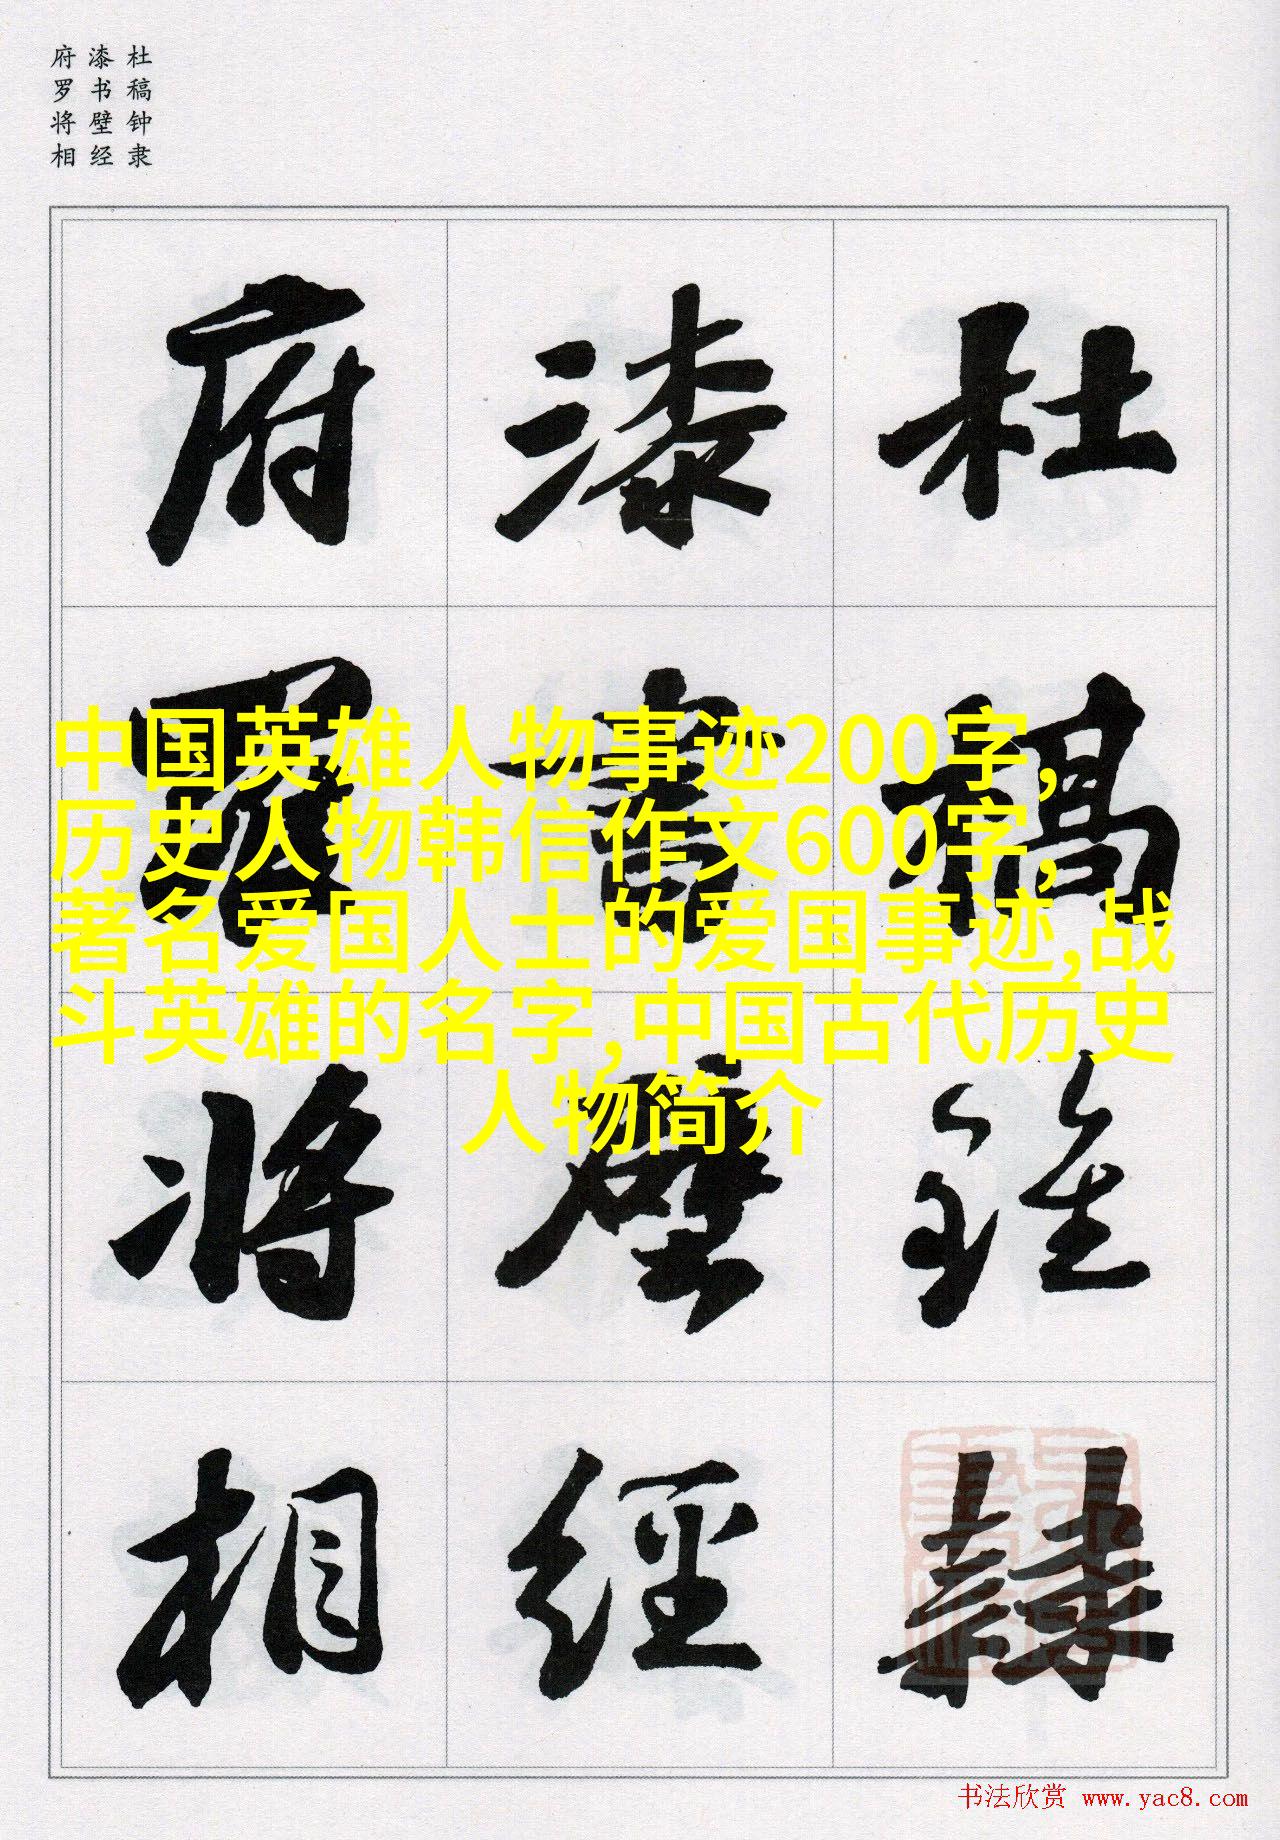 杜稿钟隶
漆书壁经
府罗将相
杜稾鍾隸
漆書壁經
府羅將相
中国英雄人物事迹200字,
历史人物韩信作文600字,
著名爱国人士的爱国事迹,战
斗英雄的名字,中国古代历史
人物简介
书法欣赏 www.yac8.com